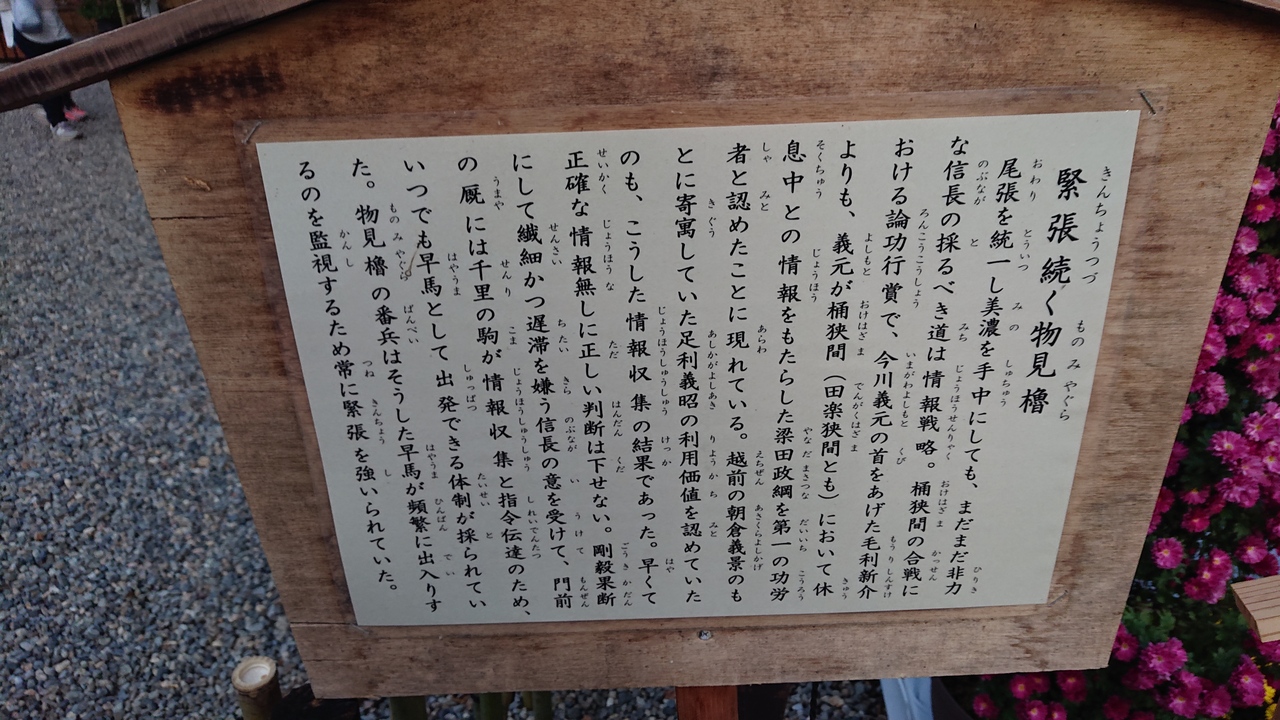 緊張続く物見櫓
尾張を統一し美濃を手中にしても、まだまだ非力
な信長の採るべき道は情報戦略。桶狭間の合戦に
おける論功行賞で、今川義元の首をあげた毛利新介
よりも、義元が桶狭間（田楽狭間とも）において休
息中との情報をもたらした梁田政綱を第一の功労
者と認めたことに現れている。越前の朝倉義景のも
とに寄寓していた足利義昭の利用価値を認めていた
のも、こうした情報収集の結果であった。早くて
正確な情報無しに正しい判断は下せない。剛毅果断
にして繊細かつ遅滞を嫌う信長の意を受けて、門前
の厩には千里の駒が情報収集と指令伝達のため、
いつでも早馬として出発できる体制が採られてい
た。物見櫓の番兵はそうした早馬が頻繁に出入りす
るのを監視するため常に緊張を強いられていた。